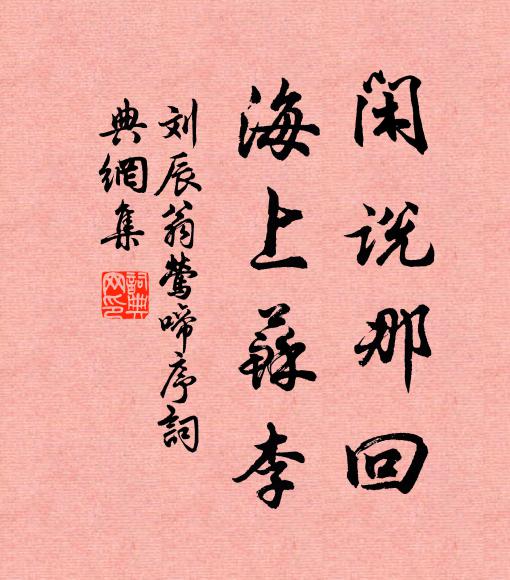 闲说那回
海上蘇李
刘辰翁莺啼序詞
典網集
詞典
网印